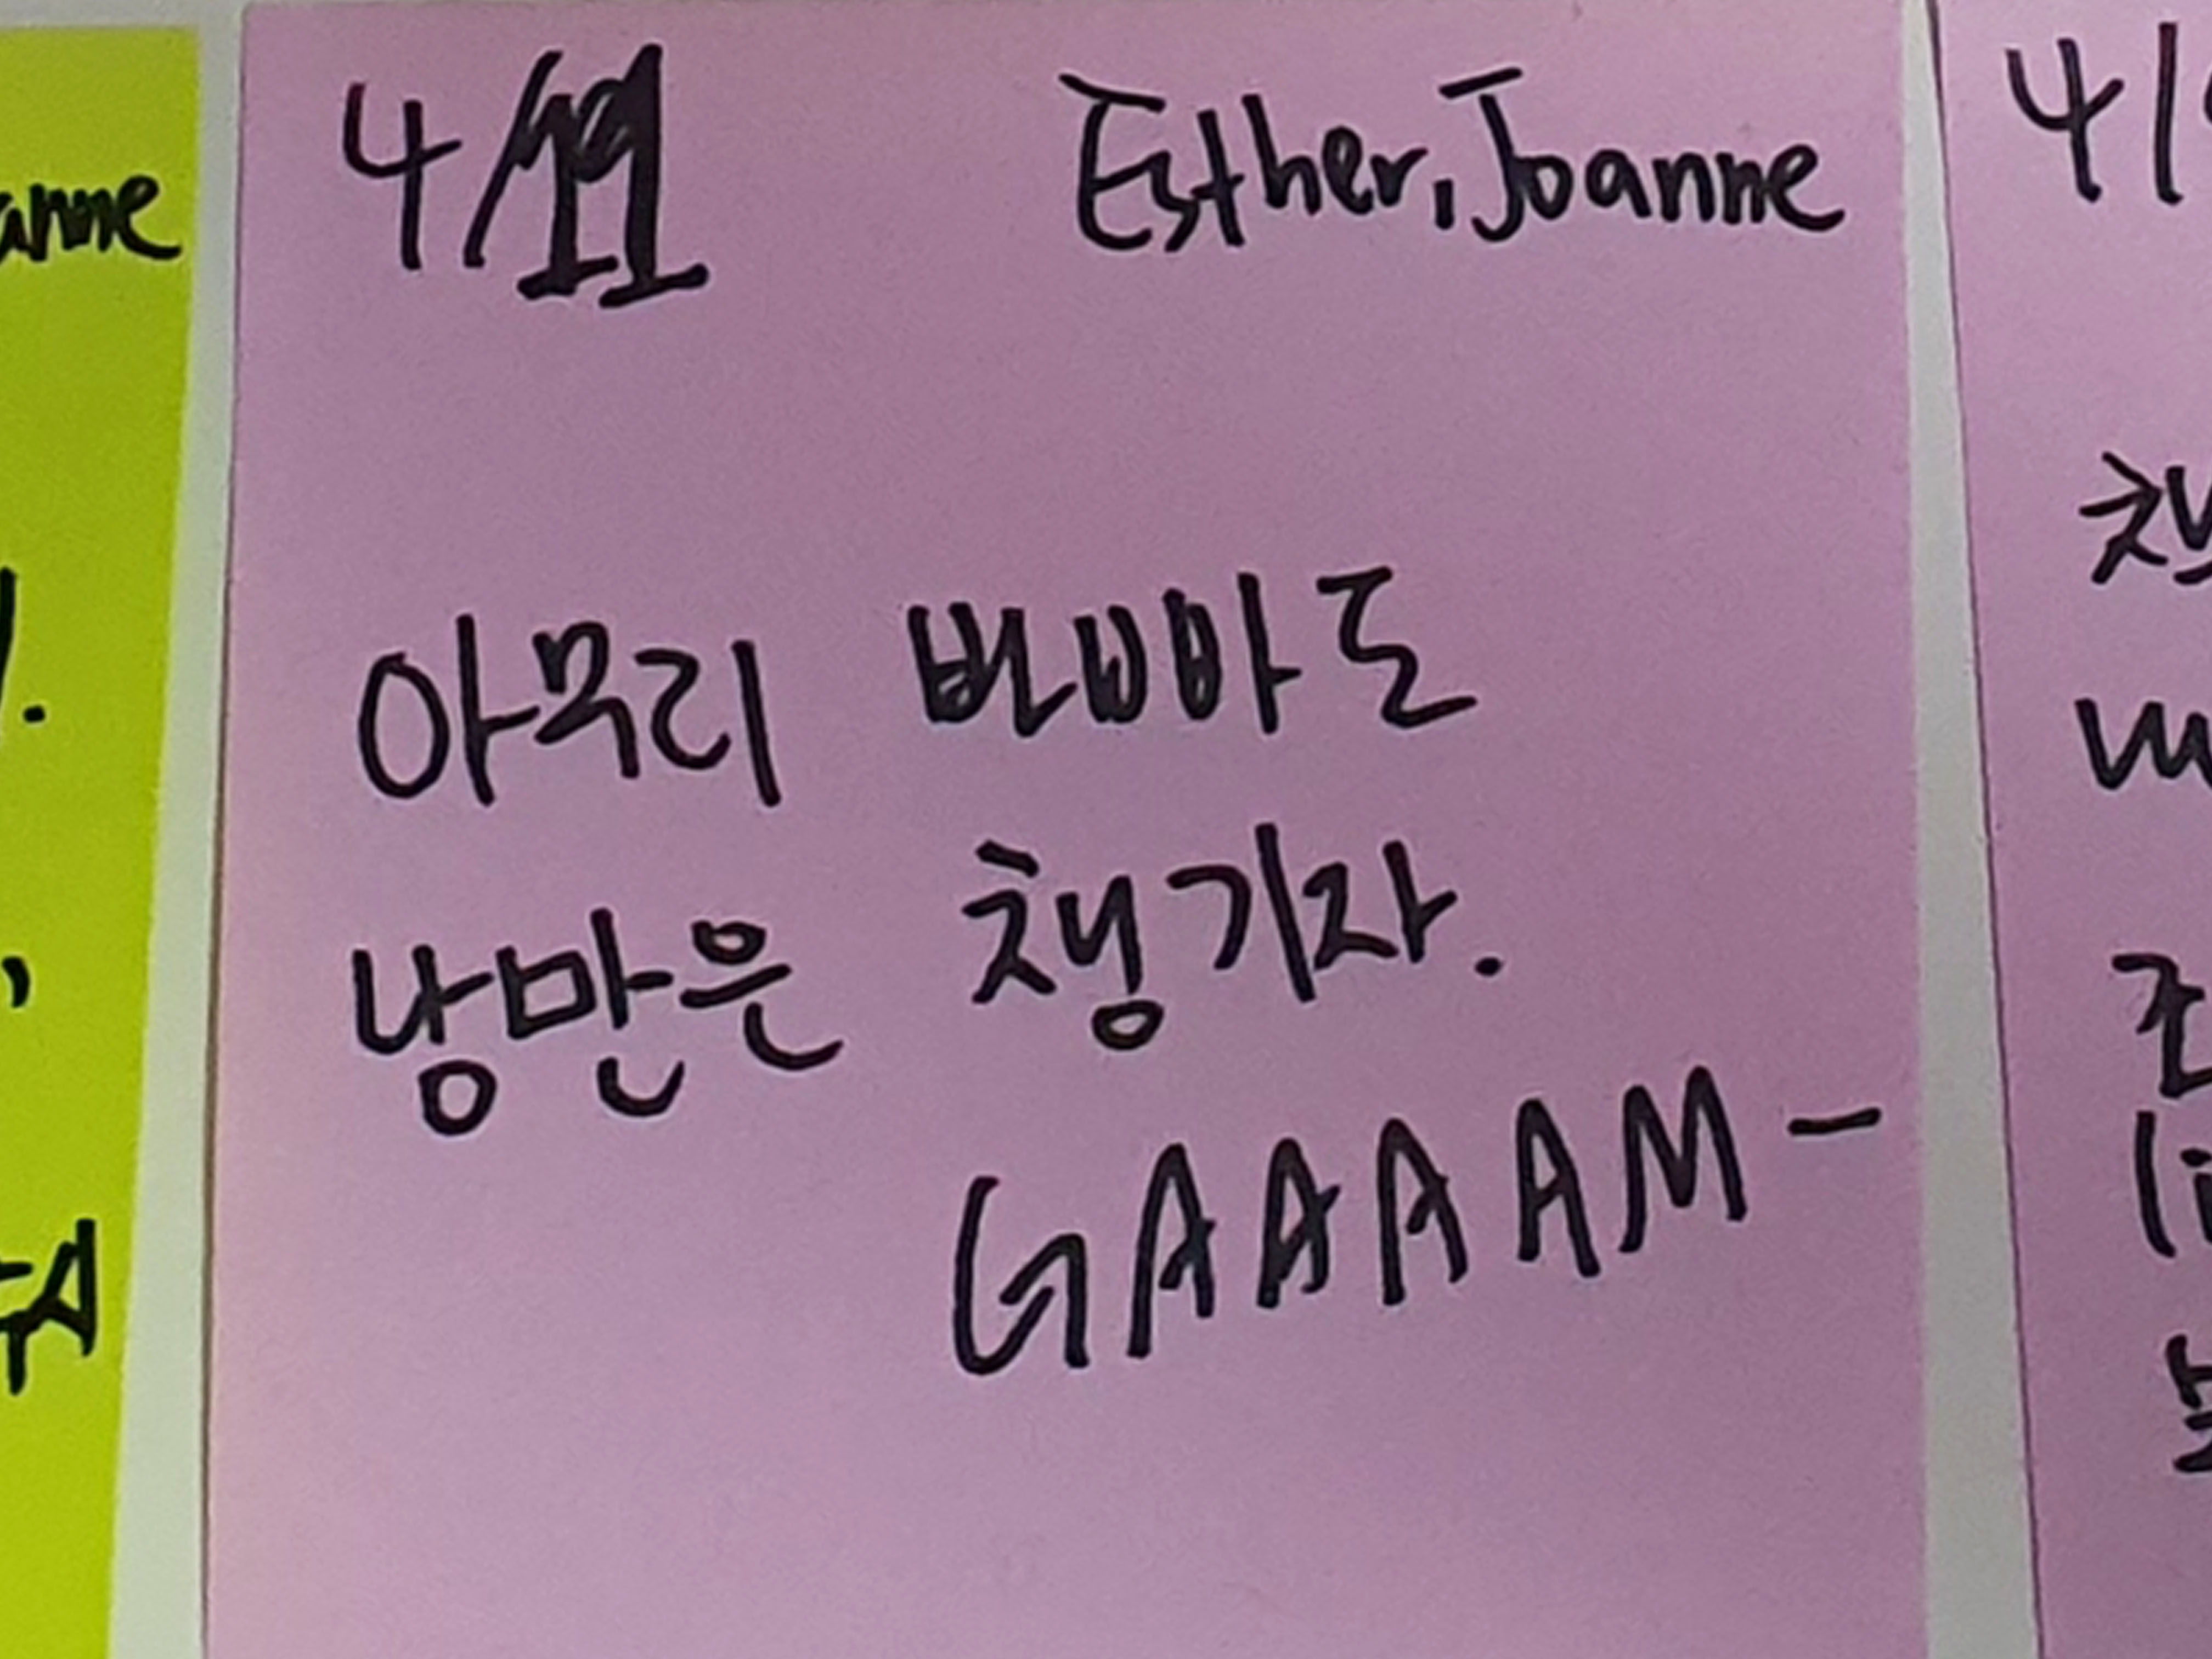 anne
4/11 Esther, Joanne
아무리 버빠도
낭만은 챙기자.
GAAAAM-